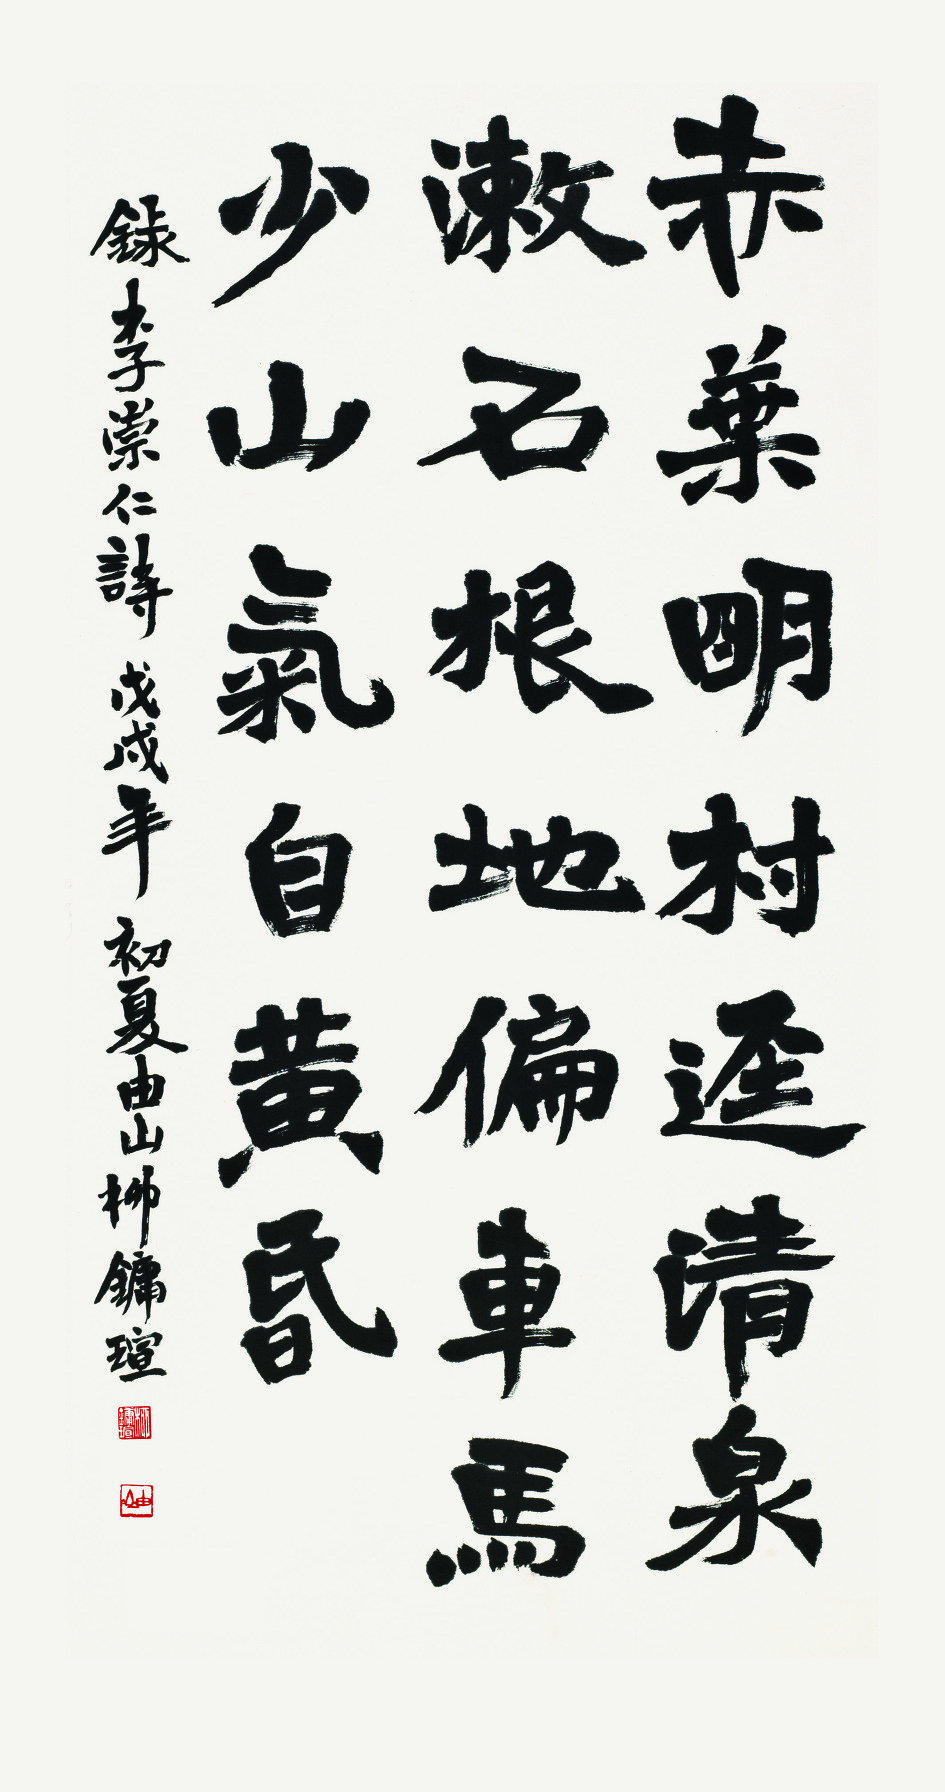 赤葉明村逕清泉
漱石根地偏車馬
少山氣自黃昏
錄李崇仁詩 戊戌年 初夏由山柳鏞瑄